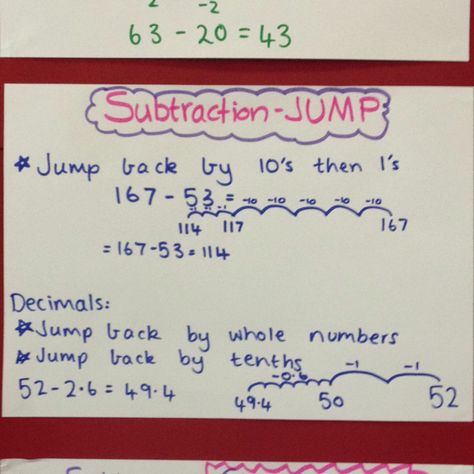 -2
63 - 20 = 43
Subtraction-JUMP
* Jump back by 10's then 1's
167 - 53 =
-10 -10 -10 -10 -10
114 117 167
= 167-53 = 114
Decimals:
* Jump back by whole numbers
* Jump back by tenths
-0.6 -1 -1
52 - 2.6 = 49.4
49.4 50 52